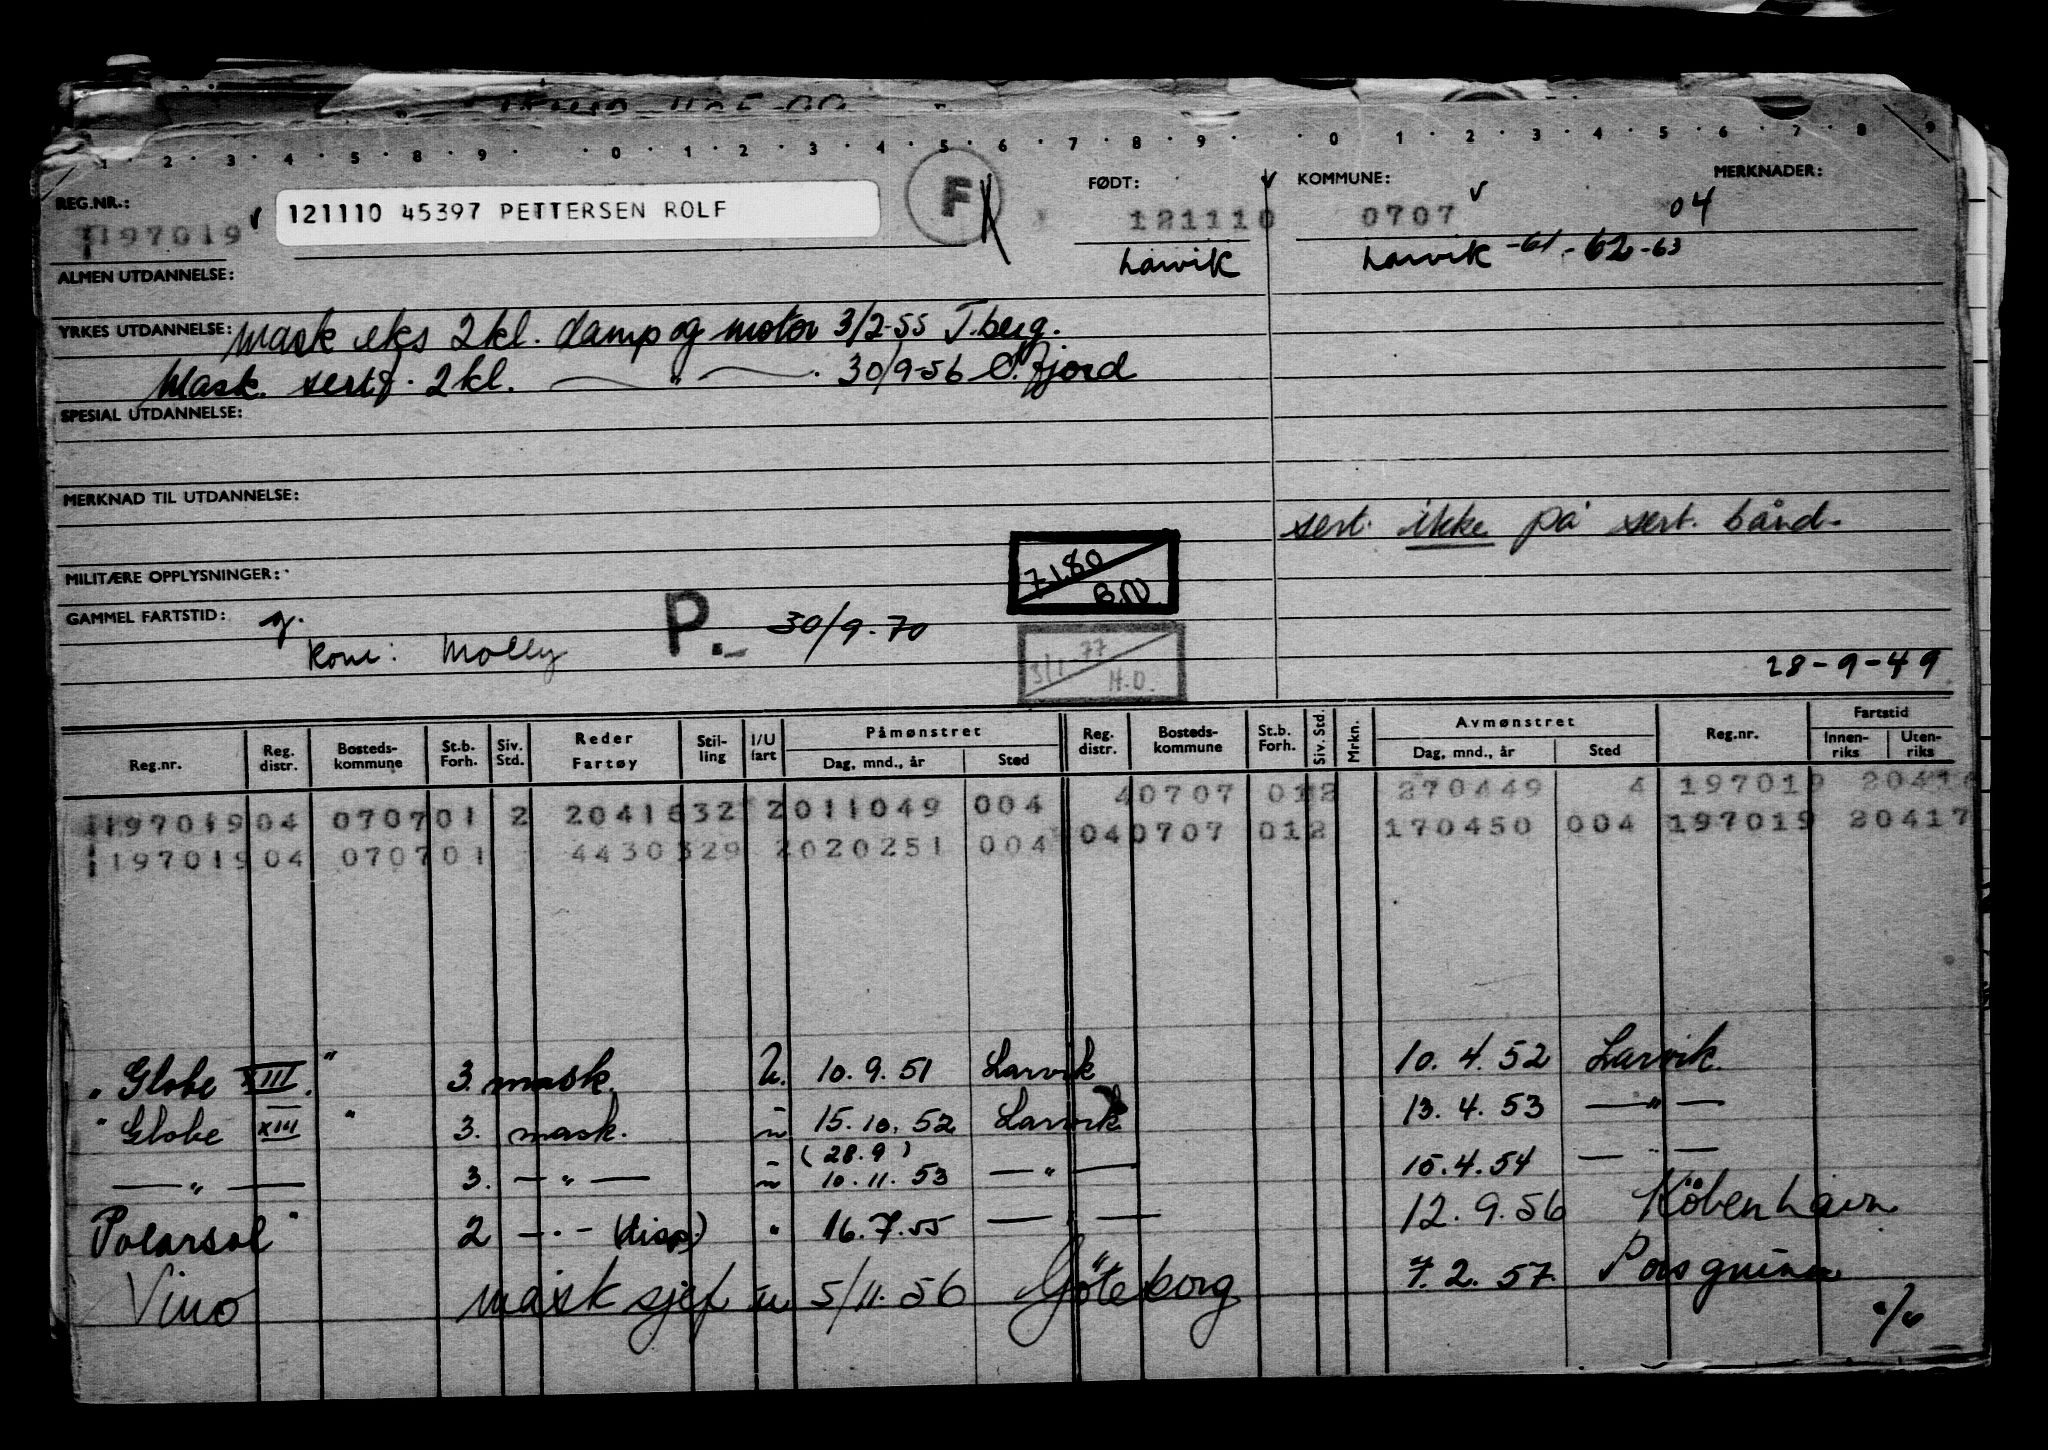 1 · 2 · 3 · 4 · 5 · 8 · 9 · 0 · 1 2 · 3 · 4 · 5 · 6 · 7 · 8 · 9 · · 0 · 1 · 2 · 3 · 4 · 5 · 6 · 7 · 8 · 9
REG.NR.: FØDT: KOMMUNE: MERKNADER:
197019 121110 45397 PETTERSEN ROLF F 121110 0707 04
Larvik Larvik -61-62-63
ALMEN UTDANNELSE:
YRKES UTDANNELSE: Mask eks 2kl. damp og motor 3/2-55 T.berg.
Mask. sertf. 2kl. — " — 30/9-56 S.fjord
SPESIAL UTDANNELSE:
MERKNAD TIL UTDANNELSE:
sert. ikke på sert. bånd.
MILITÆRE OPPLYSNINGER: 7.1.80 B.N.
GAMMEL FARTSTID: g. P. 30/9.70
Kone: Molly 3/1 77 H.O. 28-9-49
Reg.nr. Reg. distr. Bosteds- kommune St.b. Forh. Siv. Std. Reder Fartøy Stil- ling I/U fart Påmønstret Dag, mnd., år Sted Reg. distr. Bosteds- kommune St.b. Forh. Siv. Std. Mrkn. Avmønstret Dag, mnd., år Sted Reg.nr. Fartstid Innen- riks Uten- riks
40707 012 270449 4 197019
197019 04 0707 01 2 20416 32 2 011049 004 04 0707 012 170450 004 197019 20417
197019 04 0707 01 44303 29 2 020251 004
"Globe XIII." 3. mask. U. 10.9.51 Larvik 10.4.52 Larvik.
"Globe XIII" 3. mask. u 15.10.52 Larvik 13.4.53 — " —
(28.9)
— " — 3. — " — u 10.11.53 — " — 15.4.54 — " —
Polarsol" 2 — " — (disp.) " 16.7.55 — — 12.9.56 København
Vino mask sjef u 5/11.56 Göteborg 7.2.57 Porsgrunn